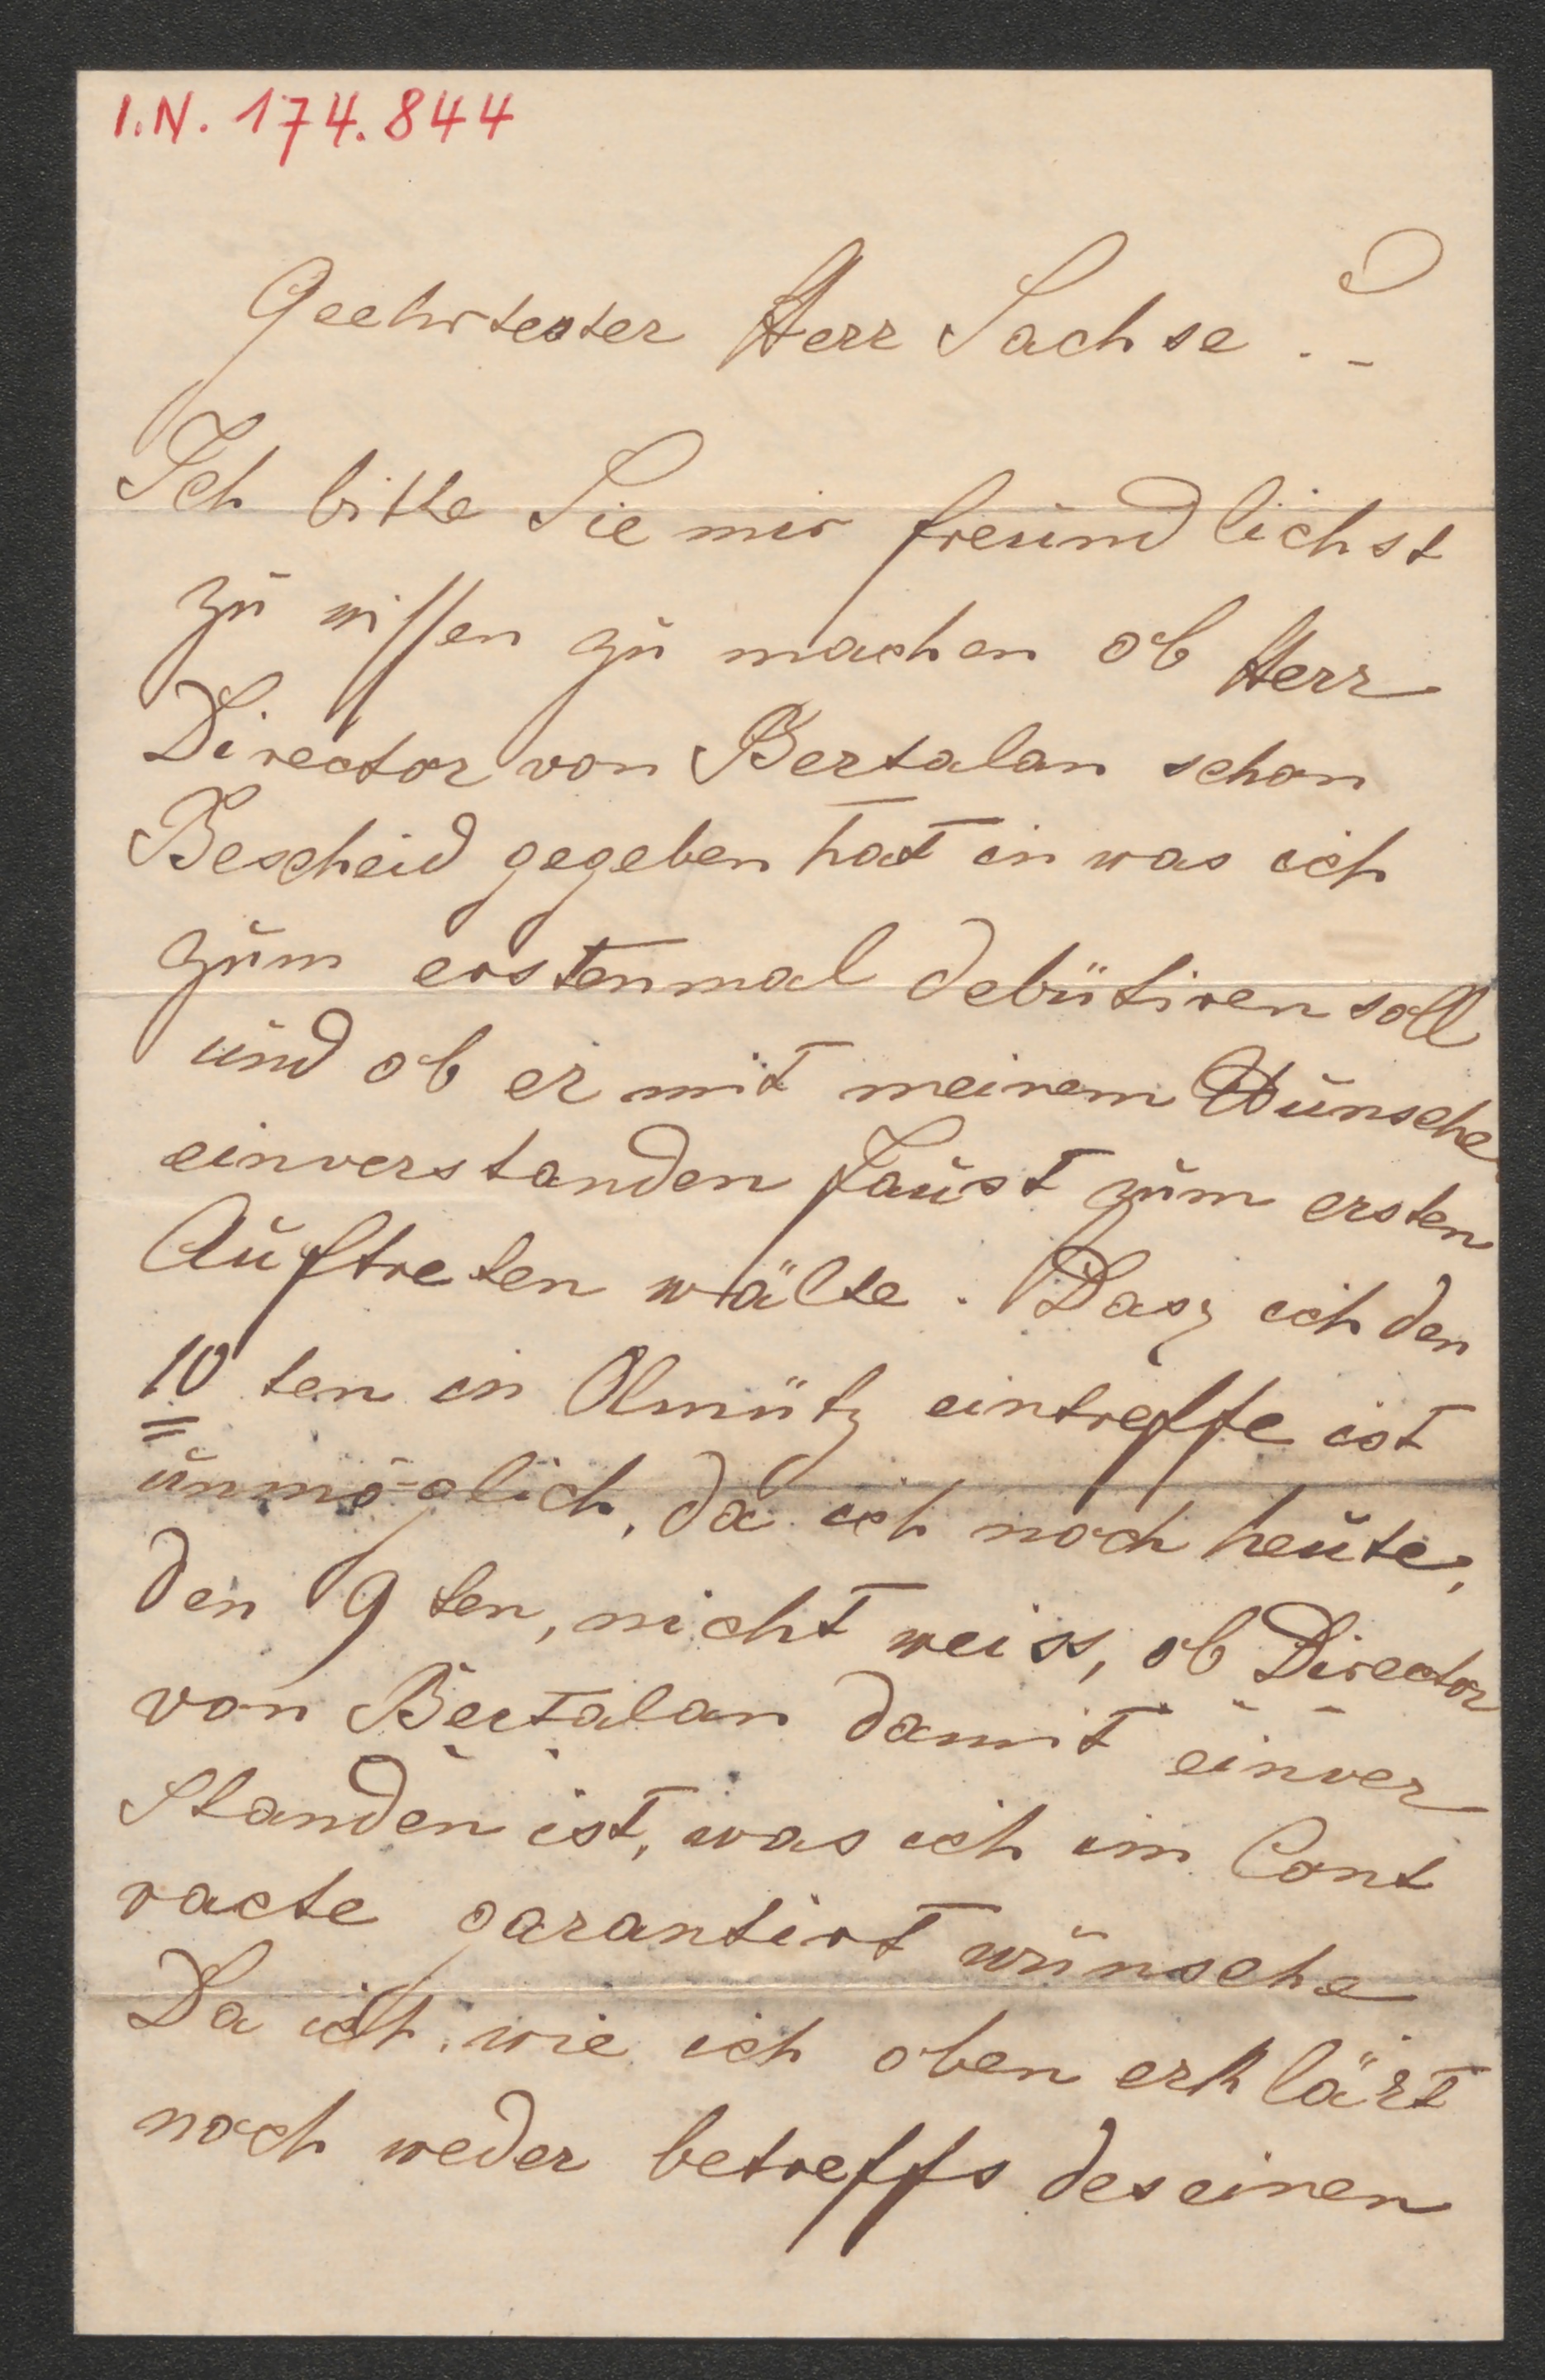 I.N. 174.844
Geehrtester Herr Sachse . –
Ich bitte Sie mir freundlichst
zu wissen zu machen ob Herr
Director von Bertalan schon
Bescheid gegeben hat in was ich
zum erstenmal debütiren soll
und ob er mit meinem Wunsche
einverstanden Faust zum ersten
Auftreten wälte. Dasz ich den
10 ten in Olmütz eintreffe ist
unmöglich, da ich noch heute,
den 9 ten, nicht weiss, ob Director
von Bertalan damit einver
standen ist, was ich im Cont
racte garantirt wünsche
Da ich wie ich oben erklärt
noch weder betreffs des einen